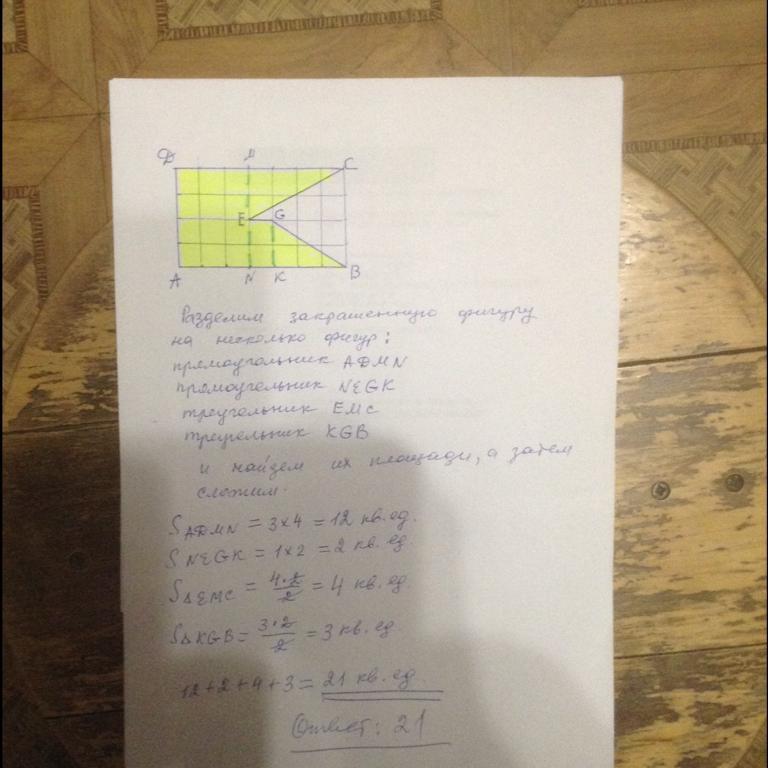 D M C
E G
A N K B
Разделим закрашенную фигуру
на несколько фигур:
прямоугольник ADMN
прямоугольник NEGK
треугольник EMC
треугольник KGB
и найдем их площади, а затем
сложим.
S ADMN = 3×4 = 12 кв.ед.
S NEGK = 1×2 = 2 кв. ед.
S△EMC = 4·2/2 = 4 кв. ед.
S△KGB = 3·2/2 = 3 кв. ед.
12+2+4+3 = 21 кв. ед.
Ответ: 21